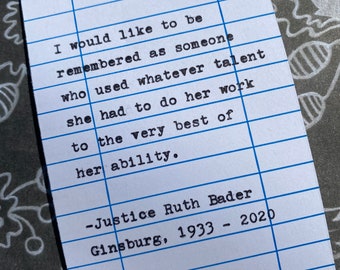 I would like to be
remembered as someone
who used whatever talent
she had to do her work
to the very best of
her ability.
-Justice Ruth Bader
Ginsburg, 1933 - 2020